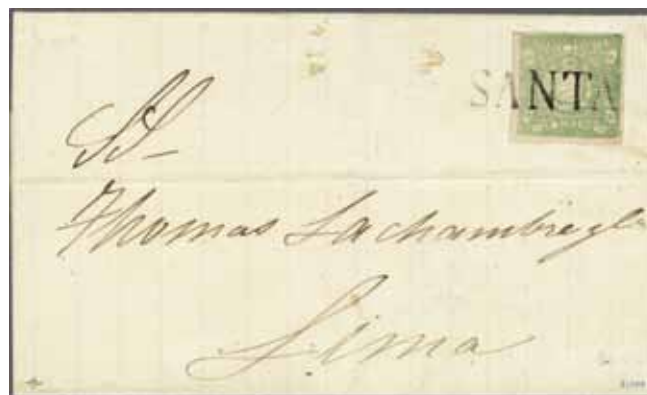 SANTA
SS
Thomas Lachambre y Ca
Lima